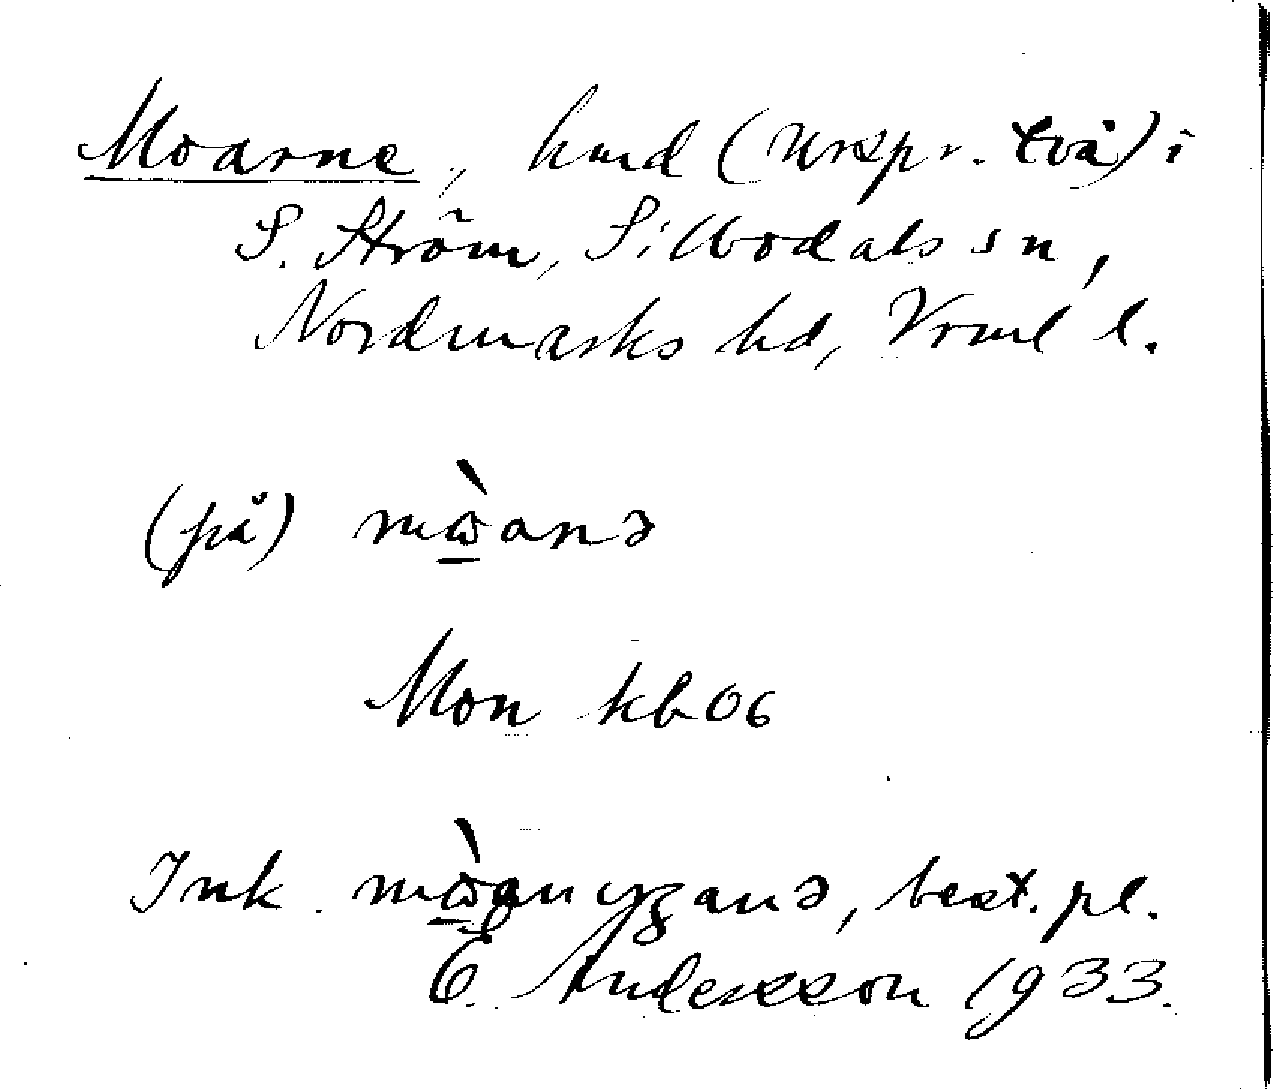 Moarne, hmd (urspr. två) i
S. Ström, Silbodals sn,
Nordmarks hd, Vrml l.
(på) mὼ̲anə
Mon kb 06
Ink. best. pl.
E. Andersson 1933.